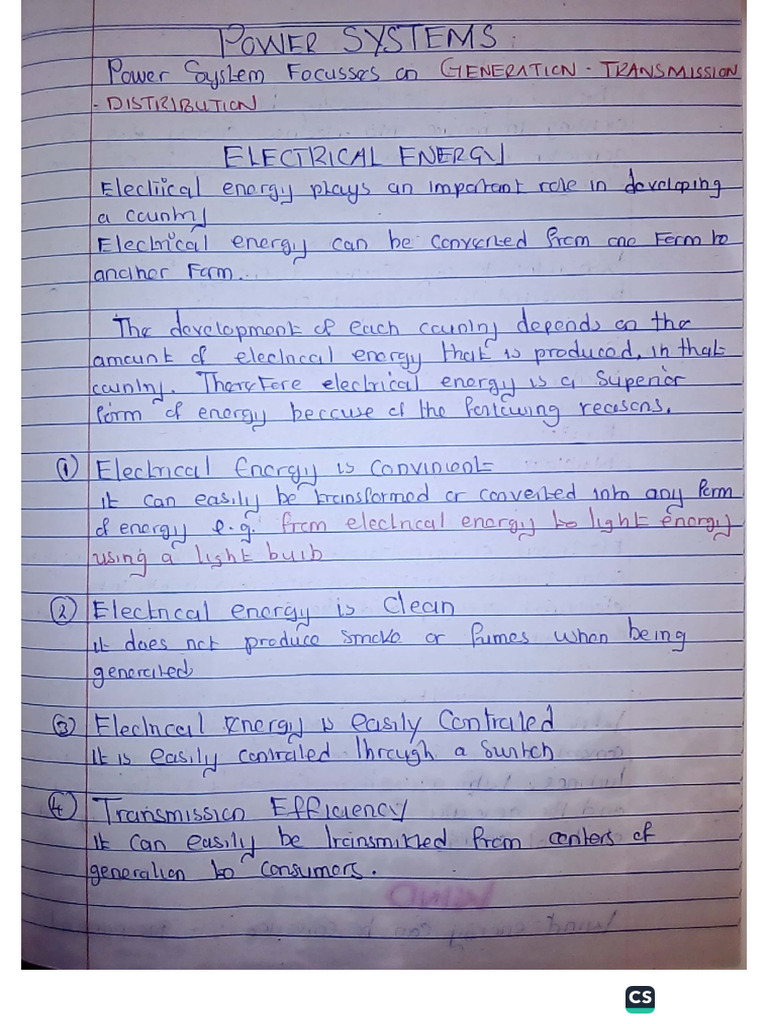 POWER SYSTEMS.
Power System Focusses on GENERATION - TRANSMISSION
- DISTRIBUTION
ELECTRICAL ENERGY
Electrical energy plays an important role in developing
a country
Electrical energy can be converted from one Form to
another Form..
The development of each country depends on the
amount of electrical energy that is produced, in that
country. Therefore electrical energy is a superior
form of energy because of the following reasons.
① Electrical Energy is convinient
it can easily be transformed or converted into any form
of energy e.g. from electrical energy to light energy
using a light bulb
② Electrical energy is Clean
it does not produce smoke or fumes when being
generated
③ Electrical Energy is easily Controled
It is easily controled through a switch
④ Transmission Efficiency
it can easily be transmitted from centers of
generation to consumers.
CS